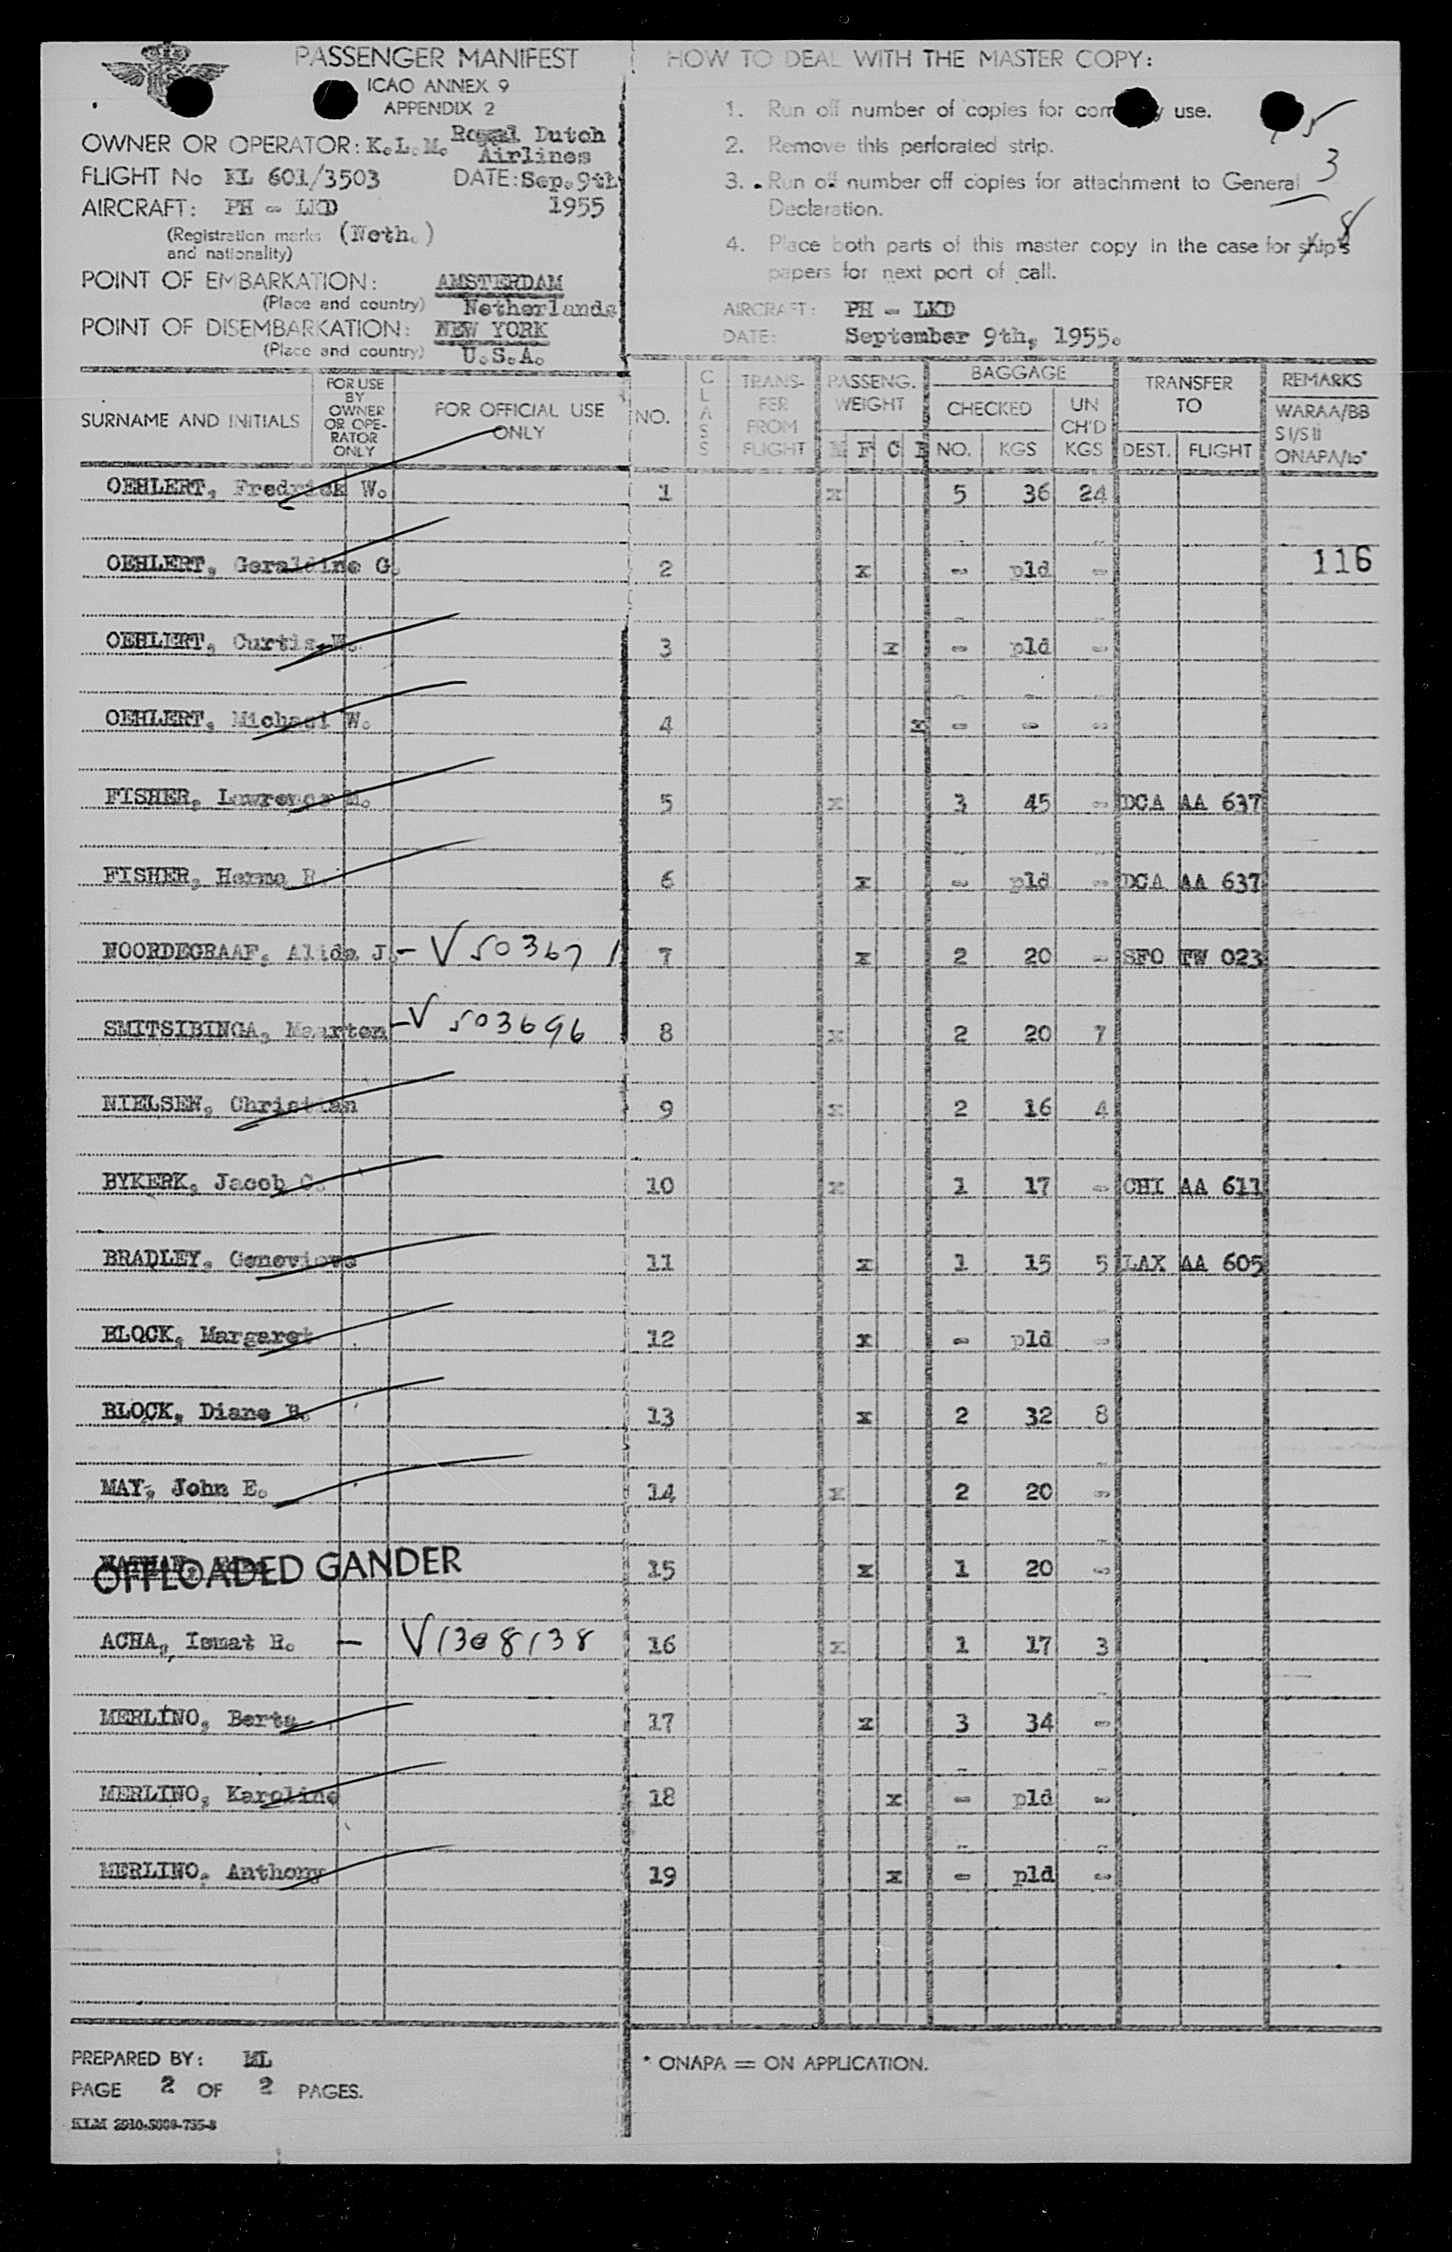 PASSENGER MANIFEST
ICAO ANNEX 9
APPENDIX 2
OWNER OR OPERATOR: K.L.M. Royal Dutch
Airlines
FLIGHT No KL 601/3503 DATE: Sep. 9th
AIRCRAFT: PH - LKD 1955
(Registration marks (Neth.)
and nationality)
POINT OF EMBARKATION: AMSTERDAM
(Place and country) Netherlands
POINT OF DISEMBARKATION: NEW YORK
(Place and country) U.S.A.
HOW TO DEAL WITH THE MASTER COPY:
1. Run off number of copies for use.
2. Remove this perforated strip.
3. Run off number off copies for attachment to General
Declaration.
3
4. Place both parts of this master copy in the case for ship's
8
papers for next port of call.
AIRCRAFT: PH - LKD
DATE: September 9th, 1955.
SURNAME AND INITIALS FOR USE BY OWNER OR OPE-RATOR ONLY FOR OFFICIAL USE ONLY NO. CLASS TRANS-FER FROM FLIGHT PASSENG. WEIGHT M F C B BAGGAGE CHECKED NO. KGS UN CH'D KGS TRANSFER TO DEST. FLIGHT REMARKS WARAA/BB S I/S II ONAPA/10*
OEHLERT, Fredrick W. 1 x 5 36 24
OEHLERT, Geraldine G. 2 x - pld - 116
OEHLERT, Curtis W. 3 x - pld -
OEHLERT, Michael W. 4 x - - -
FISHER, Lawrence M. 5 x 3 45 - DCA AA 637
FISHER, Herma R. 6 x - pld - DCA AA 637
NOORDEGRAAF, Alida J. - V 503671 7 x 2 20 - SFO TW 023
SMITSIBINGA, Maarten - V 503696 8 x 2 20 7
NIELSEN, Christian 9 x 2 16 4
BYKERK, Jacob C. 10 x 1 17 - CHI AA 611
BRADLEY, Genevieve 11 x 1 15 5 LAX AA 605
BLOCK, Margaret 12 x - pld -
BLOCK, Diane B. 13 x 2 32 8
MAY, John E. 14 x 2 20 -
OFFLOADED GANDER 15 x 1 20 -
ACHA, Ismat R. - V1308138 16 x 1 17 3
MERLINO, Berta 17 x 3 34 -
MERLINO, Karoline 18 x - pld -
MERLINO, Anthony 19 x - pld -
PREPARED BY: ML
PAGE 2 OF 2 PAGES.
* ONAPA = ON APPLICATION.